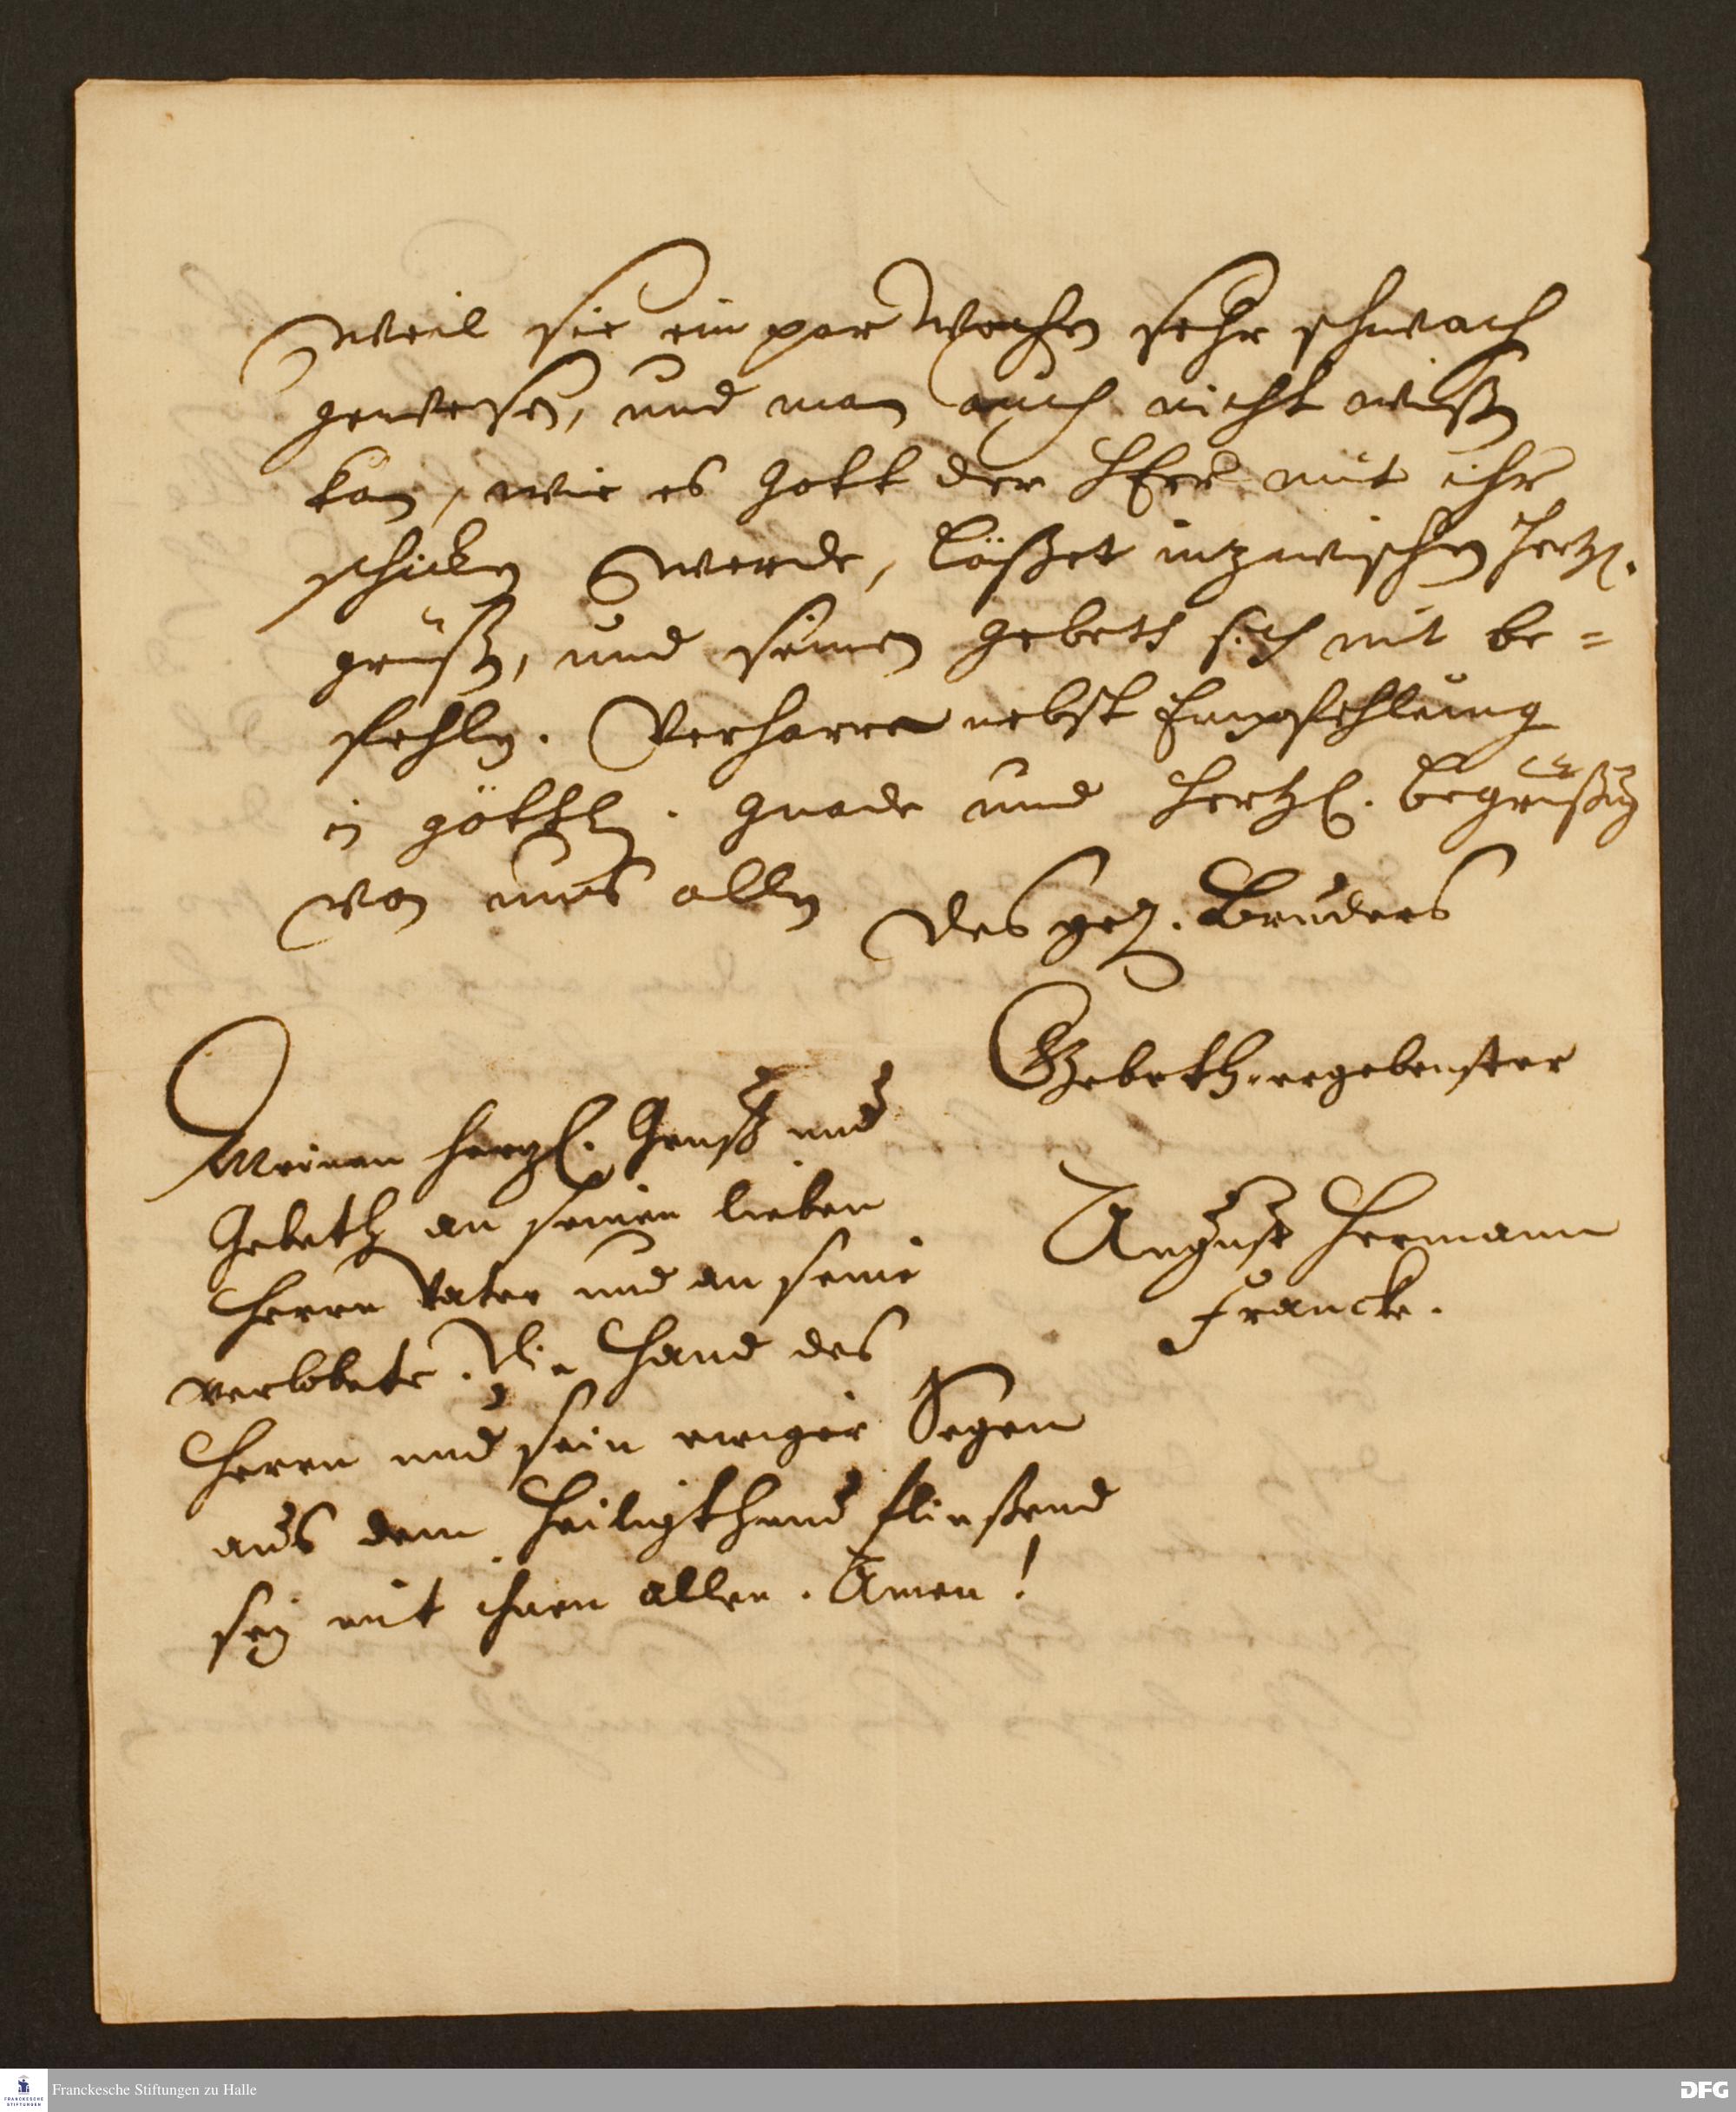 weil sie ein par Wochen sehr schwach
gewesen, und man auch nicht wißen
kan, wie es Gott der HErr mit ihr
schicken werde, läßet inzwischen hertzl.
grüßen, und seinen Gebeth sich mit be=
fehlen. Verharre nebst Empfehlung
in göttl. Gnade und hertzl. begrüßung
von uns allen
des gel. Bruders
Gebeth. ergebenster
August Hermann
Francke.
Meinen hertzl. Gruß und
Gebeth an seinen lieben
Herrn Vater und an seine
verlobete. Die Hand des
Herrn und sein ewiger Segen
aus dem Heiligthum fließend
sey mit ihnen allen. Amen!
Franckesche Stiftungen zu Halle
FRANCKESCHE
STIFTUNGEN
DFG